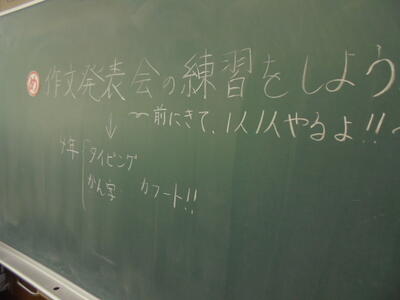 め 作文発表会の練習をしよう
～前にきて、1人1人やるよ!!～
↓
4年 タイピング
かん字 カフート!!